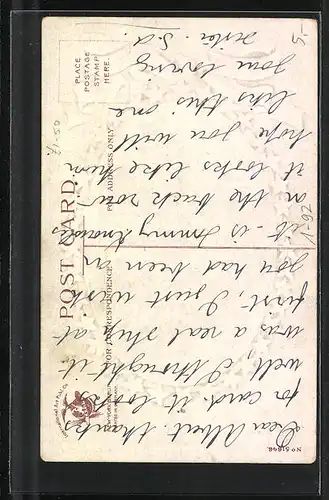 Dear Albert. thanks
for card. it looks
well, I thought it
was a real ship at
first, I just wish
you had been in
it - is Jimmy
on the back row
it looks like him
hope you will
like this one
your loving
sister. S.a.
POST CARD.
FOR CORRESPONDENCE
FOR ADDRESS ONLY
PLACE
POSTAGE
STAMP
HERE.
£1-50
1-92
5.-